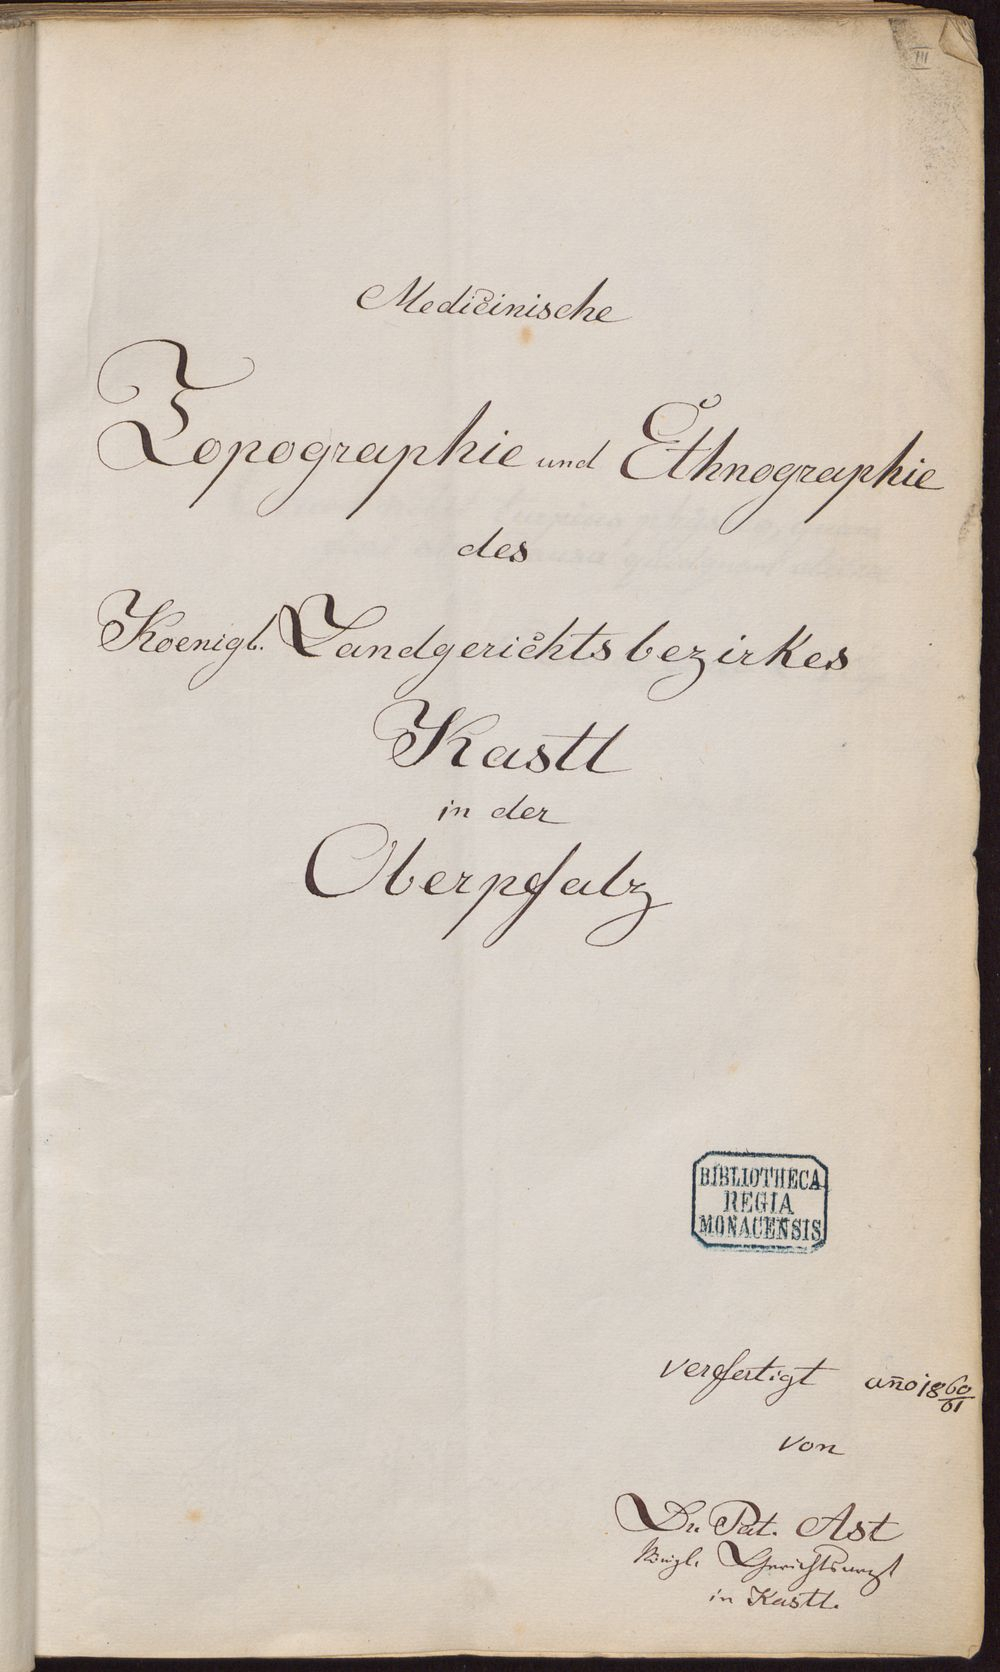 III
Medicinische
Topographie und Ethnographie
des
Koenigl. Landgerichtsbezirkes
Kastl
in der
Oberpfalz
BIBLIOTHECA
REGIA
MONACENSIS
verfertigt año 1860/61
von
Dr. Pat. Ast
königl. Gerichtsarzt
in Kastl.